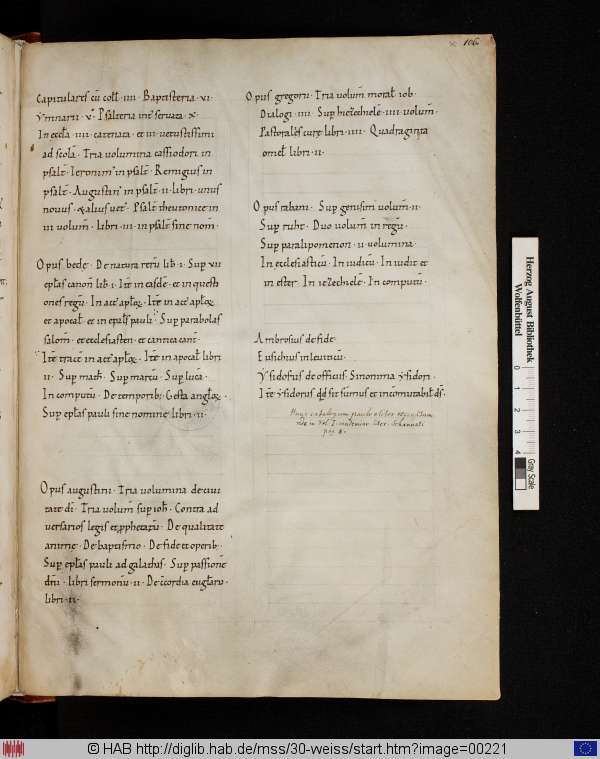 106
Capitulares cū coll̄ · IIII · Baptisteria · VI ·
Ymnarii · V · Psalteria inē seruata · X ·
In eccl̄a · IIII · catenata · et III · uetustissimi
ad scolā · Tria volumina cassiodori in
psalt̄ · Ieronim' in psalt̄ · Remigius in
psalt̄ · Augustin' in psalt̄ · II · libri · unus
nouus · & alius uet' · Psalt̄ theutonice in
III volum̄ · libri · III · in psalt̄ sine nom̄ ·
Opus bedę · De natura rerū lib̄ · I · Sup̄ VII
ep̄las canon̄ lib̄ · I · Itē in easdē · et in questi
ones regū · In act' ap̄lōꝝ · Itē in act' ap̄lōꝝ
et apocal̄ · et in ep̄lis pauli · Sup̄ parabolas
salom̄ · et in ecclesiasten · et cantica cant̄ ·
Itē tract̄ in act' ap̄lōꝝ · Itē in apocal̄ libri
II · Sup̄ math̄ · Sup̄ marcū · Sup̄ lucā ·
In computū · De temporib; · Gesta anglōꝝ ·
Sup̄ ep̄las pauli sine nomine libri · II ·
Opus augustini · Tria volumina de ciui
tate dī · Tria volum̄ sup̄ ioh̄ · Contra ad
uersarios legis et ꝓphetarū · De qualitate
animę · De baptismo · De fide et operib; ·
Sup̄ ep̄las pauli ad galathas · Sup̄ passionē
dn̄i · libri sermonū · II · De ↄcordia eugl̄arū ·
libri · II ·
Opus gregorii · Tria volum̄ moral̄ iob ·
Dialogi · IIII · Sup̄ hiezechielē · IIII · volum̄ ·
Pastoralēs curę libri · IIII · Quadraginta
omel̄ libri · II ·
Opus rabani · Sup̄ genisim volum̄ · II ·
Sup̄ ruth̄ · Duo volum̄ in regū ·
Sup̄ paralipomenon · II · volumina ·
In ecclesiasticū · In iudicū · In iudit et
in ester · In iezechielē · In computū ·
Ambrosius de fide ·
Eusichius in leuiticū ·
Ysidorus de officiis · Sinonima ysidori ·
Itē ysidorus qd̄ sit sūmus et incōmutabil̄ ds̄ ·
Hunc catalogum paulo aliter
vide in Vol. I. vindemiar. liter. Schannati
pag. 8.
Herzog August Bibliothek
Wolfenbüttel
0 1 2 3 4
Gray Scale
© HAB http://diglib.hab.de/mss/30-weiss/start.htm?image=00221